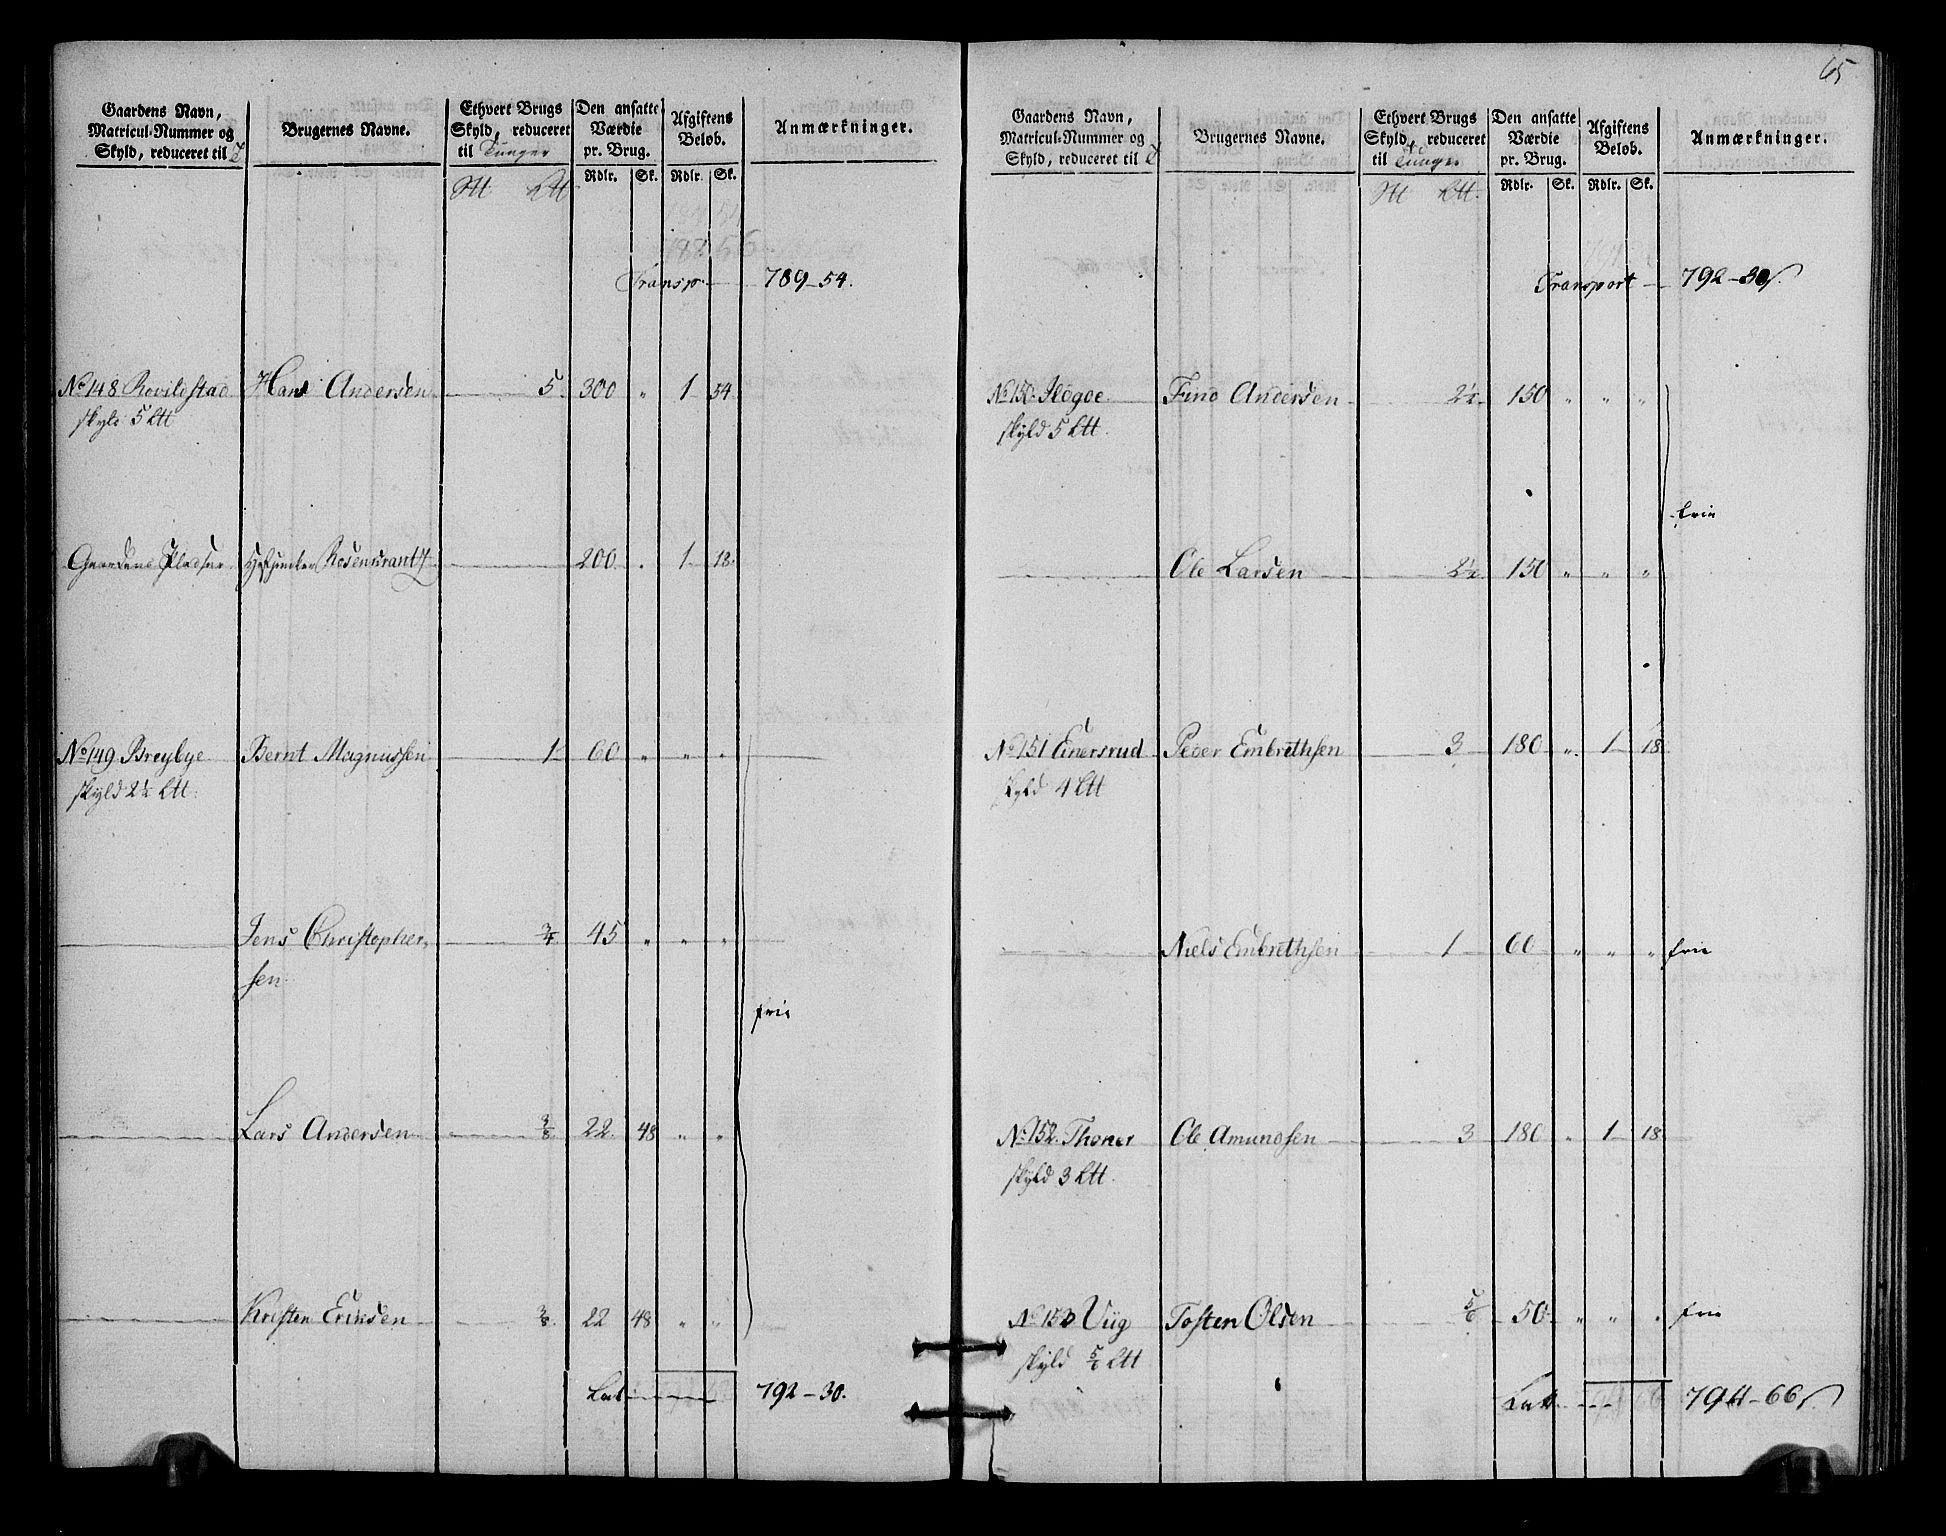 Gaardens Navn,
Matricul-Nummer og
Skyld, reduceret til
Brugernes Navne.
Ethvert Brugs
Skyld, reduceret
til Tunger
Den ansatte
Værdie
pr. Brug.
Afgiftens
Beløb.
Anmærkninger.
Rdlr. Sk. Rdlr. Sk.
Transp. 789-54.
No 148 Rovildstad Hans Andersen 5. 300 " 1 54
skyld 5 Ltt
Gaardens Pladser Rosencrantz 200 . 1 18.
No 149 Breybye Bernt Magnussen 1 60 " " "
skyld 2½ Ltt.
Jens Christopher- ¾ 45 " " "
sen
frie
Lars Andersen ⅜ 22 48 " "
Kristen Eriksen ⅜ 22 48 " "
Lat. 792-30.
65
Gaardens Navn,
Matricul-Nummer og
Skyld, reduceret til
Brugernes Navne.
Ethvert Brugs
Skyld, reduceret
til Tunger
Den ansatte
Værdie
pr. Brug.
Afgiftens
Beløb.
Anmærkninger.
Rdlr. Sk. Rdlr. Sk.
Transport 792-30
No 150 Fino Andersen 2½ 150 " " "
skyld 5 Ltt.
frie
Ole Larsen 2½ 150 " " "
No 151 Einersrud Peder Embrethsen 3 180 " 1 18
skyld 4 Ltt
Niels Embrethsen 1 60 " " " frie
No 152 Thoner Ole Amundsen 3 180 " 1 18
skyld 3 Ltt.
No 153 Viig Tosten Olsen ⅚ 50 " " " frie
skyld ⅚ Ltt
Lat. 794-66